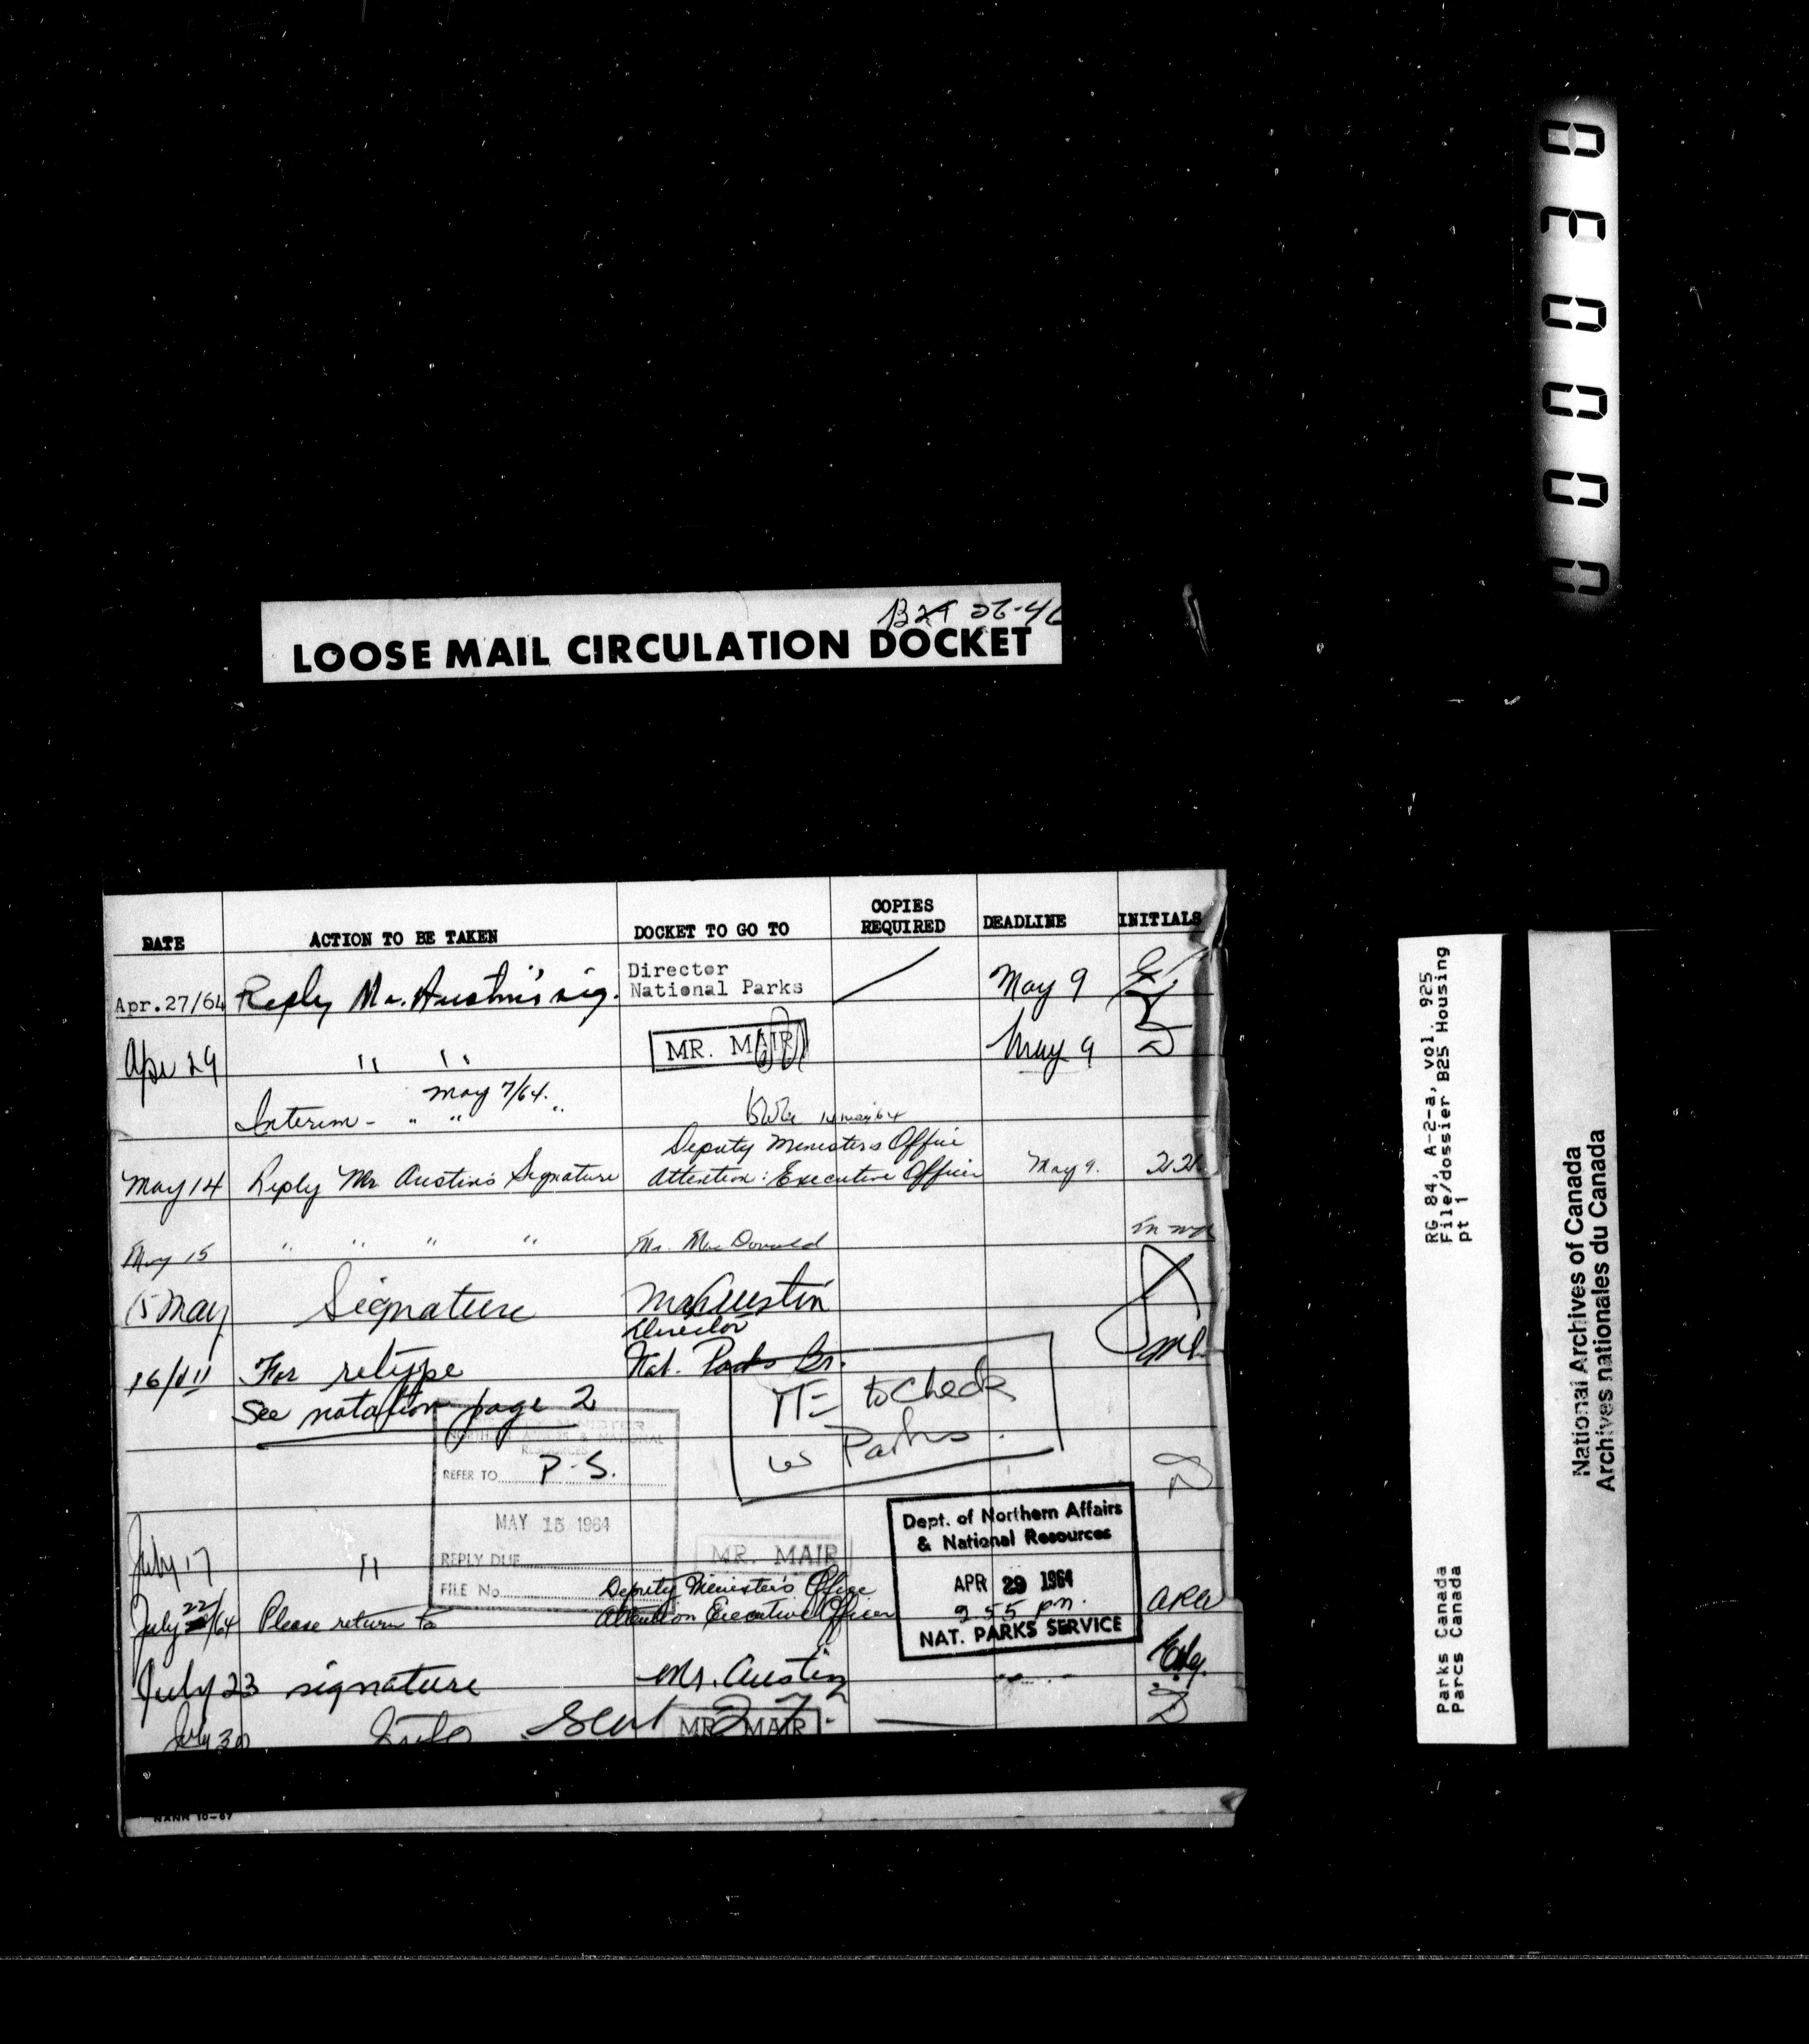 26-46
LOOSE MAIL CIRCULATION DOCKET
DATE ACTION TO BE TAKEN DOCKET TO GO TO COPIES REQUIRED DEADLINE INITIALS
Apr.27/64 Reply Mr. Austin's sig. Director National Parks May 9
Apr 29 " " MR. MAIR May 9
Interim - " May 7/64. " "
14 May 64
Deputy Minister's Office
May 14 Reply Mr Austin's Signature Attention: Executive Officer May 9.
May 15 " " " " Mr. MacDonald
15 May Signature Mr Austin
Director
For retype Nat. Parks Br.
See notation page 2
to check
Parks.
DEPUTY MINISTER
NORTHERN AFFAIRS & NATIONAL
RESOURCES
REFER TO P.S.
MAY 15 1964
REPLY DUE
FILE No.
July 17 " MR. MAIR
Dept. of Northern Affairs
& National Resources
APR 29 1964
2 55 pm.
NAT. PARKS SERVICE
Deputy Minister's Office
July 22/64 Please return to Attention Executive Officer ARW
July 23 signature Mr. Austin
July 30 Sent 27. MR. MAIR
NANR 10-67
000030
RG 84, A-2-a, vol. 925
File/dossier B25 Housing
pt 1
Parks Canada
Parcs Canada
National Archives of Canada
Archives nationales du Canada